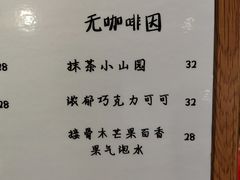 无咖啡因
28 抹茶小山园 32
28 浓郁巧克力可可 32
接骨木芒果百香 28
果气泡水